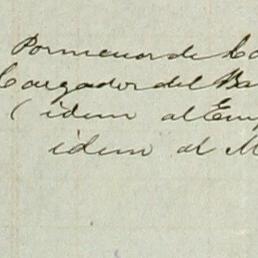 Pormenor de Co
Cargador del Ba
(idem al Em
idem al M